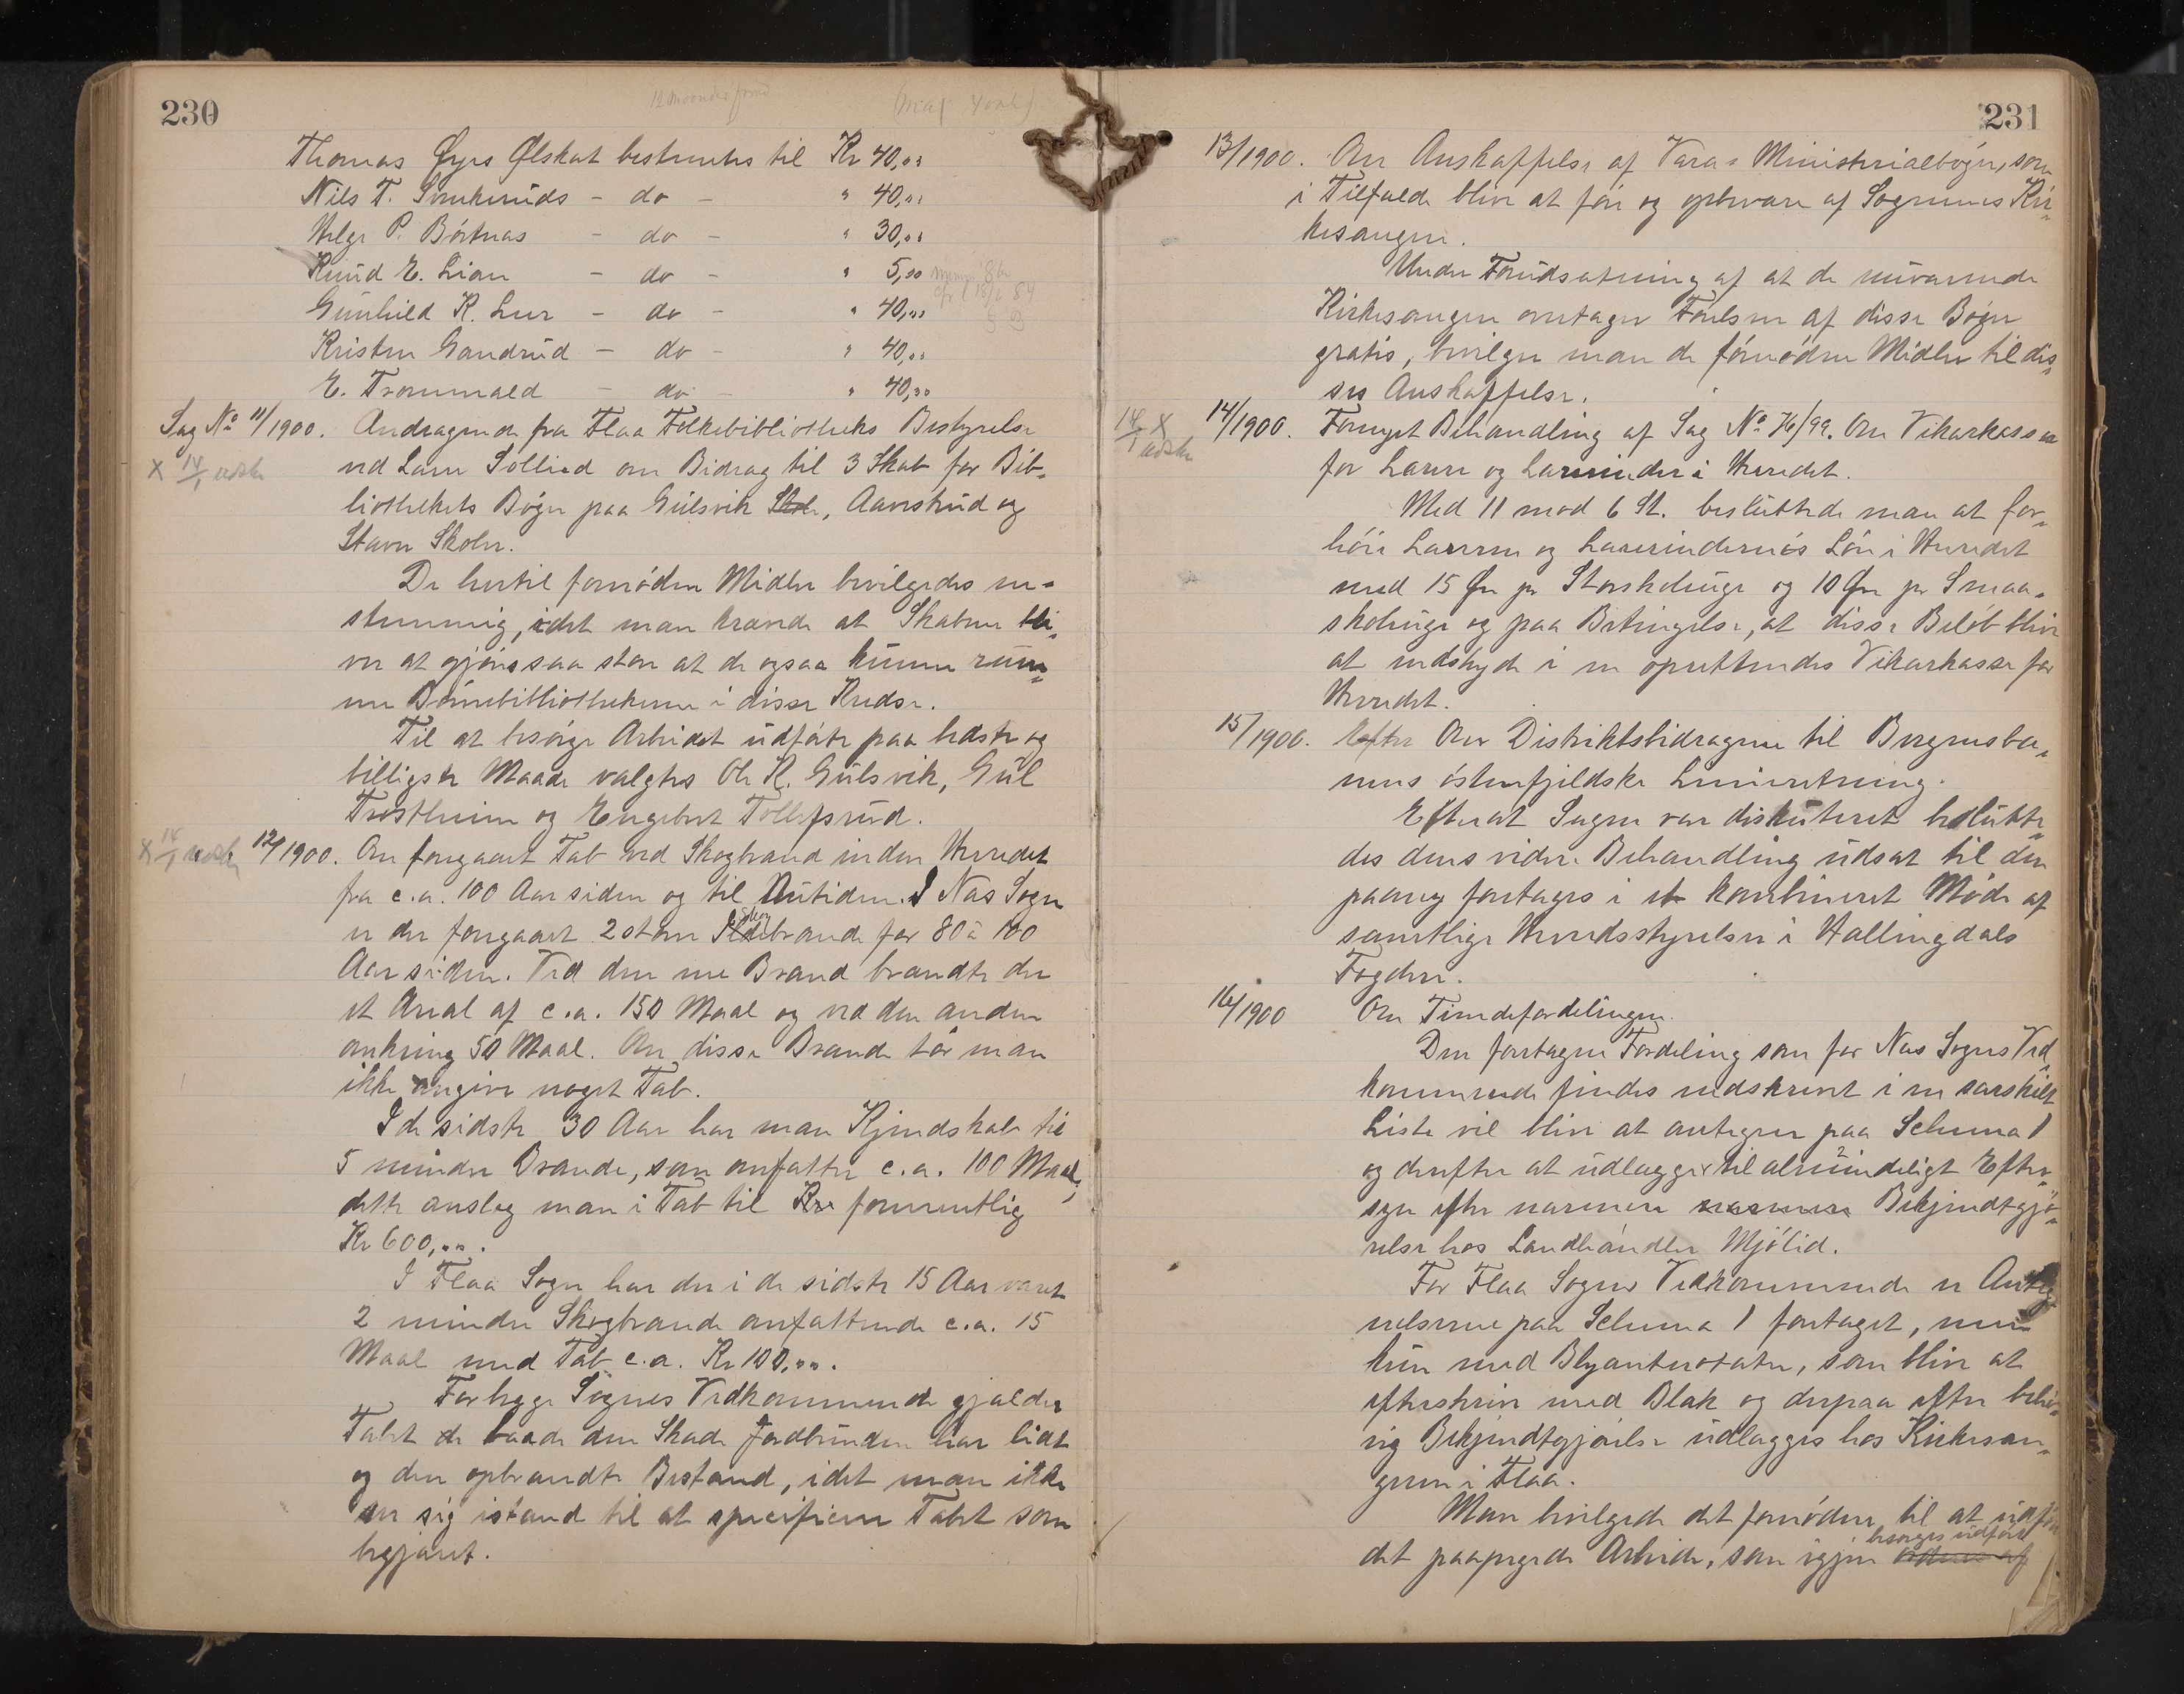 230
Thomas Øyes Ølskat bestemtes til Kr 40,00
Nils T. Sønkeruds - do - " 40,00
Helge P. Børtnæs - do - " 30,00
Knud E. Lian - do - " 5,00
Gunhild K. Lur - do - " 40,00
Kristen Gandrud - do - " 40,00
E. Trommald - do - " 40,00
Sag No 11/1900. Andragende fra Flaa Folkebibliotheks Bestyrelse
x 14/1 udsk.
ved Laur Sollied om Bidrag til 3 Skab for Bib-
liothekets Bøger paa Gulsvik Skole, Aaverstrud og
Stavn Skoler.
De hertil fornødne Midler bevilgedes en-
stemmig, idet man krævede at Skabene bli-
ver at gjøres saa store at de ogsaa kunne rum-
me Børnebibliothekerne i disse Kredse.
Til at besørge Arbeidet udført paa bedste og
billigste Maade valgtes Ole K. Gulsvik, Gul
Trostheim og Engebret Tollefsrud.
x 14/1 udsk 12/1900. Om foregaaet Tab ved Skogbrand inden Herredet
fra c.a. 100 Aar siden og til Nutiden. I Næs Sogn
er der foregaaet 2 større Skogbrande for 80 à 100
Aar siden. Ved den ene Brand brændte der
et Areal af c.a. 150 Maal og ved den anden
omkring 50 Maal. Om disse Brande tør man
ikke angive noget Tab.
I de sidste 30 Aar har man Kjendskab til
5 mindre Brande, som omfatter c.a. 100 Maal,
dette anslog man i Tab til Kr formentlig
Kr 600,00.
I Flaa Sogn har der i de sidste 15 Aar været
2 mindre Skogbrande omfattende c.a. 15
Maal med Tab c.a. Kr 100,00.
For begge Sognes Vedkommende gjælder
Tabet de baade den Skade Jordbunden har lidt
og den opbrændte Bestand, idet man ikke
ser sig istand til at specificere Tabet som
begjæret.
231
13/1900. Om Anskaffelse af Vara- Ministerialbøger, som
i Tilfælde bliver at føre og opbevare af Sognenes Kir-
kesangere.
Under Forudsætning af at de nuværende
Kirkesangere overtager Førelsen af disse Bøger
gratis, bevilger man de fornødne Midler til dis-
ses Anskaffelse.
14/1 x udsk
14/1900. Fornyet Behandling af Sag No 76/99. Om Vikarkasse
for Lærere og Lærerinder i Herredet.
Med 11 mod 6 St. besluttede man at for-
høie Lærerne og Lærerindernes Løn i Herredet
med 15 Øre pr Storskoleuge og 10 Øre pr Smaa-
skoleuge og paa Betingelse, at disse Beløb bliver
at indskyde i en oprettendes Vikarkasse for
Herredet.
15/1900. Efter Om Distriktsbidragene til Bergensba-
nens østenfjeldske Linieretning.
Efterat Sagen var diskuteret beslutte-
des dens videre Behandling udsat til den
paany foretages i et kombineret Møde af
samtlige Herredsstyrelser i Hallingdals
Fogderi.
16/1900 Om Tiendefordelingen.
Den foretagne Fordeling som for Næs Sogns Ved-
kommende findes nedskrevet i en særskilt
Liste vil blive at antegne paa Schema 1
og derefter at udlægges til almindeligt Efter-
syn efter nærmere nærmere Bekjendtgjø-
relse hos Landhandler Mjølid.
For Flaa Sogns Vedkommende er Anteg-
nelserne paa Schema 1 foretaget, men
kun med Blyantnotater, som bliver at
efterskrive med Blæk og derpaa efter behø-
rig Bekjendtgjørelse udlægges hos Kirkesan-
geren i Flaa.
Man bevilgede det fornødne til at udføre
besørges udført
det paapegede Arbeide, som igjen